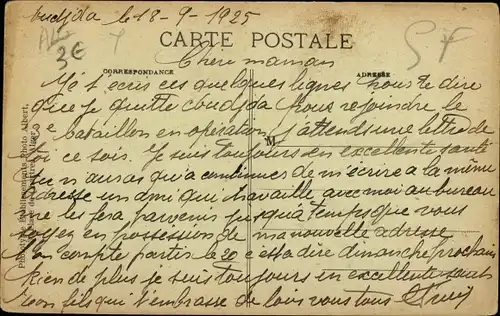 oudjda le 18-9-1925
CARTE POSTALE
Chère maman
CORRESPONDANCE
ADRESSE
Je t'ecris ces quelques lignes pour te dire
que je quitte oudjda pour rejoindre le
e bataillon en opération j'attends une lettre de
toi ce soir. Je suis toujours en excellente santé
M
tu n'auras qu'a continuer de m'écrire a la même
adresse un ami qui travaille avec moi au bureau
me les fera parvenir jusqu'a temps que vous
soyez en possession de ma nouvelle adresse
on compte partir le 20 c'est a dire dimanche prochain
Rien de plus je suis toujours en excellente santé
ton fils qui t'embrasse de loin vous tous
Photo Albert
ALG
3€
SF